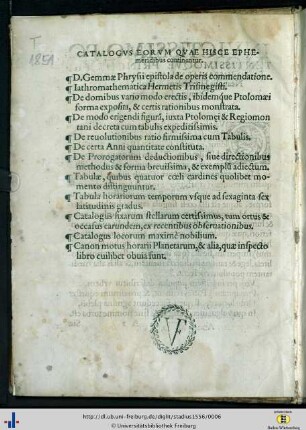 T
1851
CATALOGVS EORVM QVAE HISCE EPHE-
meridibus continentur.
¶ D. Gemmæ Phrysij epistola de operis commendatione.
¶ Iathromathematica Hermetis Trismegisti.
¶ De domibus vario modo erectis, ibidemque Ptolomæi
forma exposita, & certis rationibus monstrata.
¶ De modo erigendi figurā, iuxta Ptolomęi & Regiomon
tani decreta cum tabulis expeditissimis.
¶ De reuolutionibus ratio firmissima cum Tabulis.
¶ De certa Anni quantitate constituta.
¶ De Prorogatorum deductionibus, siue directionibus
methodus & forma breuissima, & exemplū adiectum.
¶ Tabulæ, quibus quatuor cœli cardines quolibet mo-
mento distinguuntur.
¶ Tabulæ horariorum temporum vsque ad sexaginta sex
latitudinis gradus.
¶ Catalogus fixarum stellarum certissimus, tam ortus &
occasus earundem, ex recentibus obseruationibus.
¶ Catalogus locorum maximè nobilium.
¶ Canon motus horarii Planetarum, & alia, quæ inspecto
libro cuilibet obuia sunt.
VF
http://dl.ub.uni-freiburg.de/diglit/stadius1556/0006
© Universitätsbibliothek Freiburg